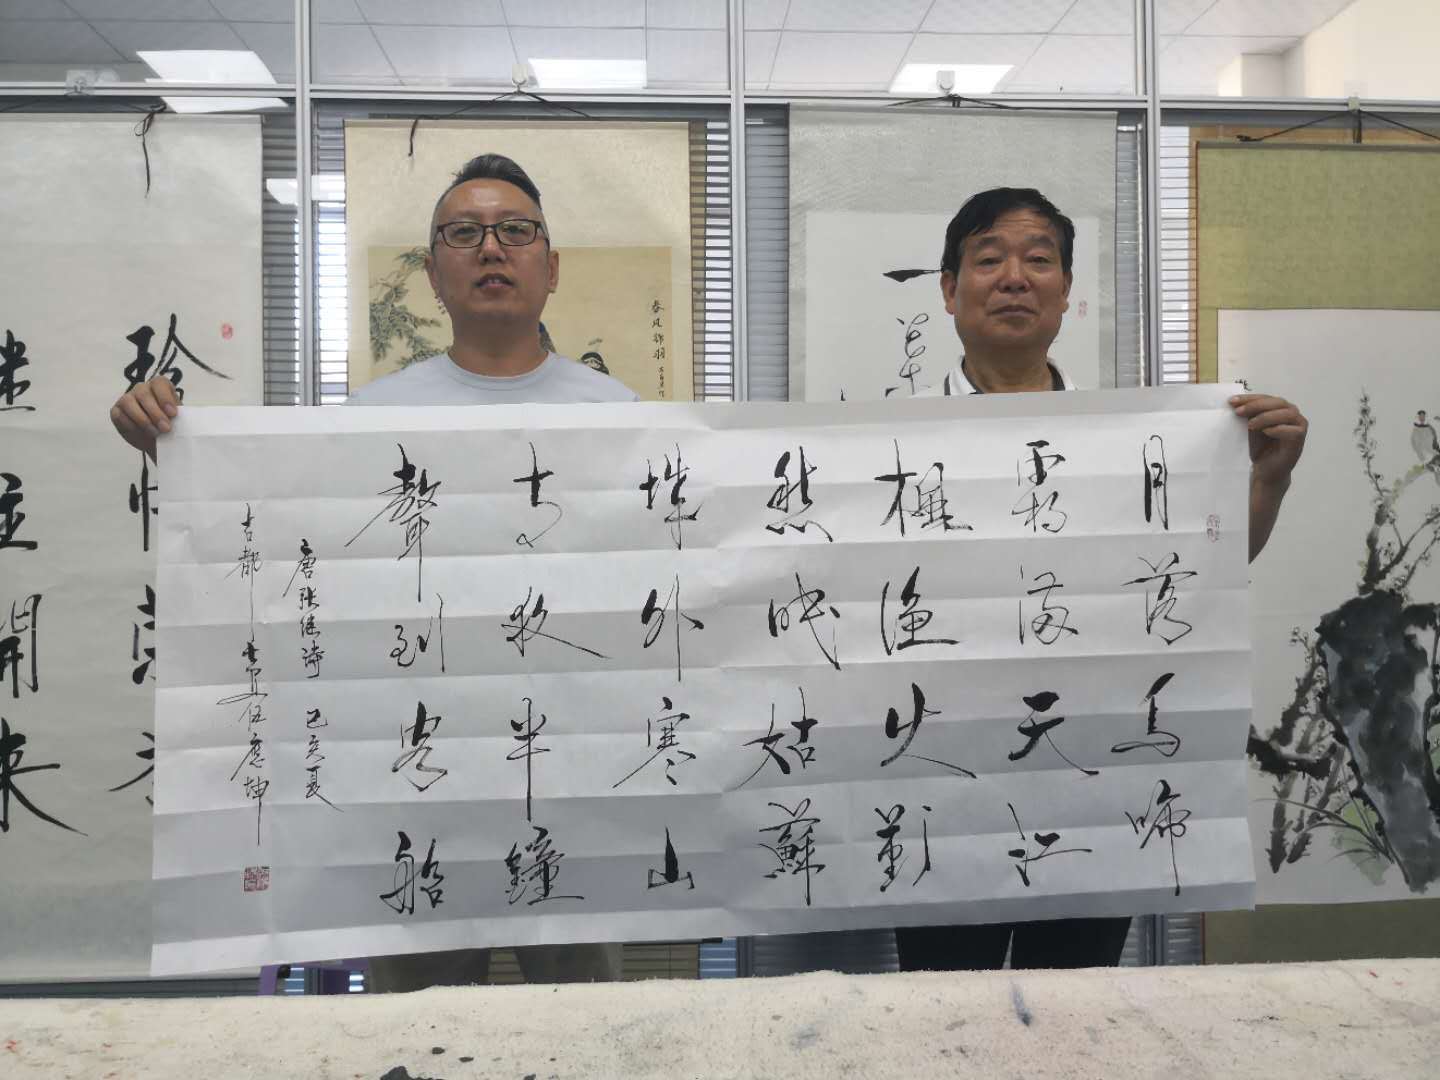 月落烏啼
霜滿天江
楓漁火對
愁眠姑蘇
城外寒山
寺夜半鐘
聲到客船
唐張繼詩 己亥夏
古都 伍應坤
珍
往開來
春風
一葉